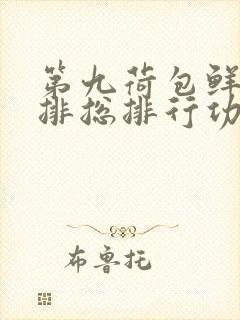 第九荷包鲜
排总排行功
布鲁托